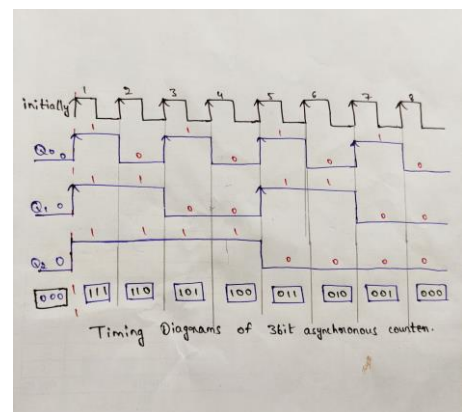 1 2 3 4 5 6 7 8
initially
Q0 0 1 0 1 0 1 0 1 0
Q1 0 1 1 0 0 1 1 0 0
Q2 0 1 1 1 1 0 0 0 0
000 111 110 101 100 011 010 001 000
Timing Diagrams of 3bit asynchronous counter.